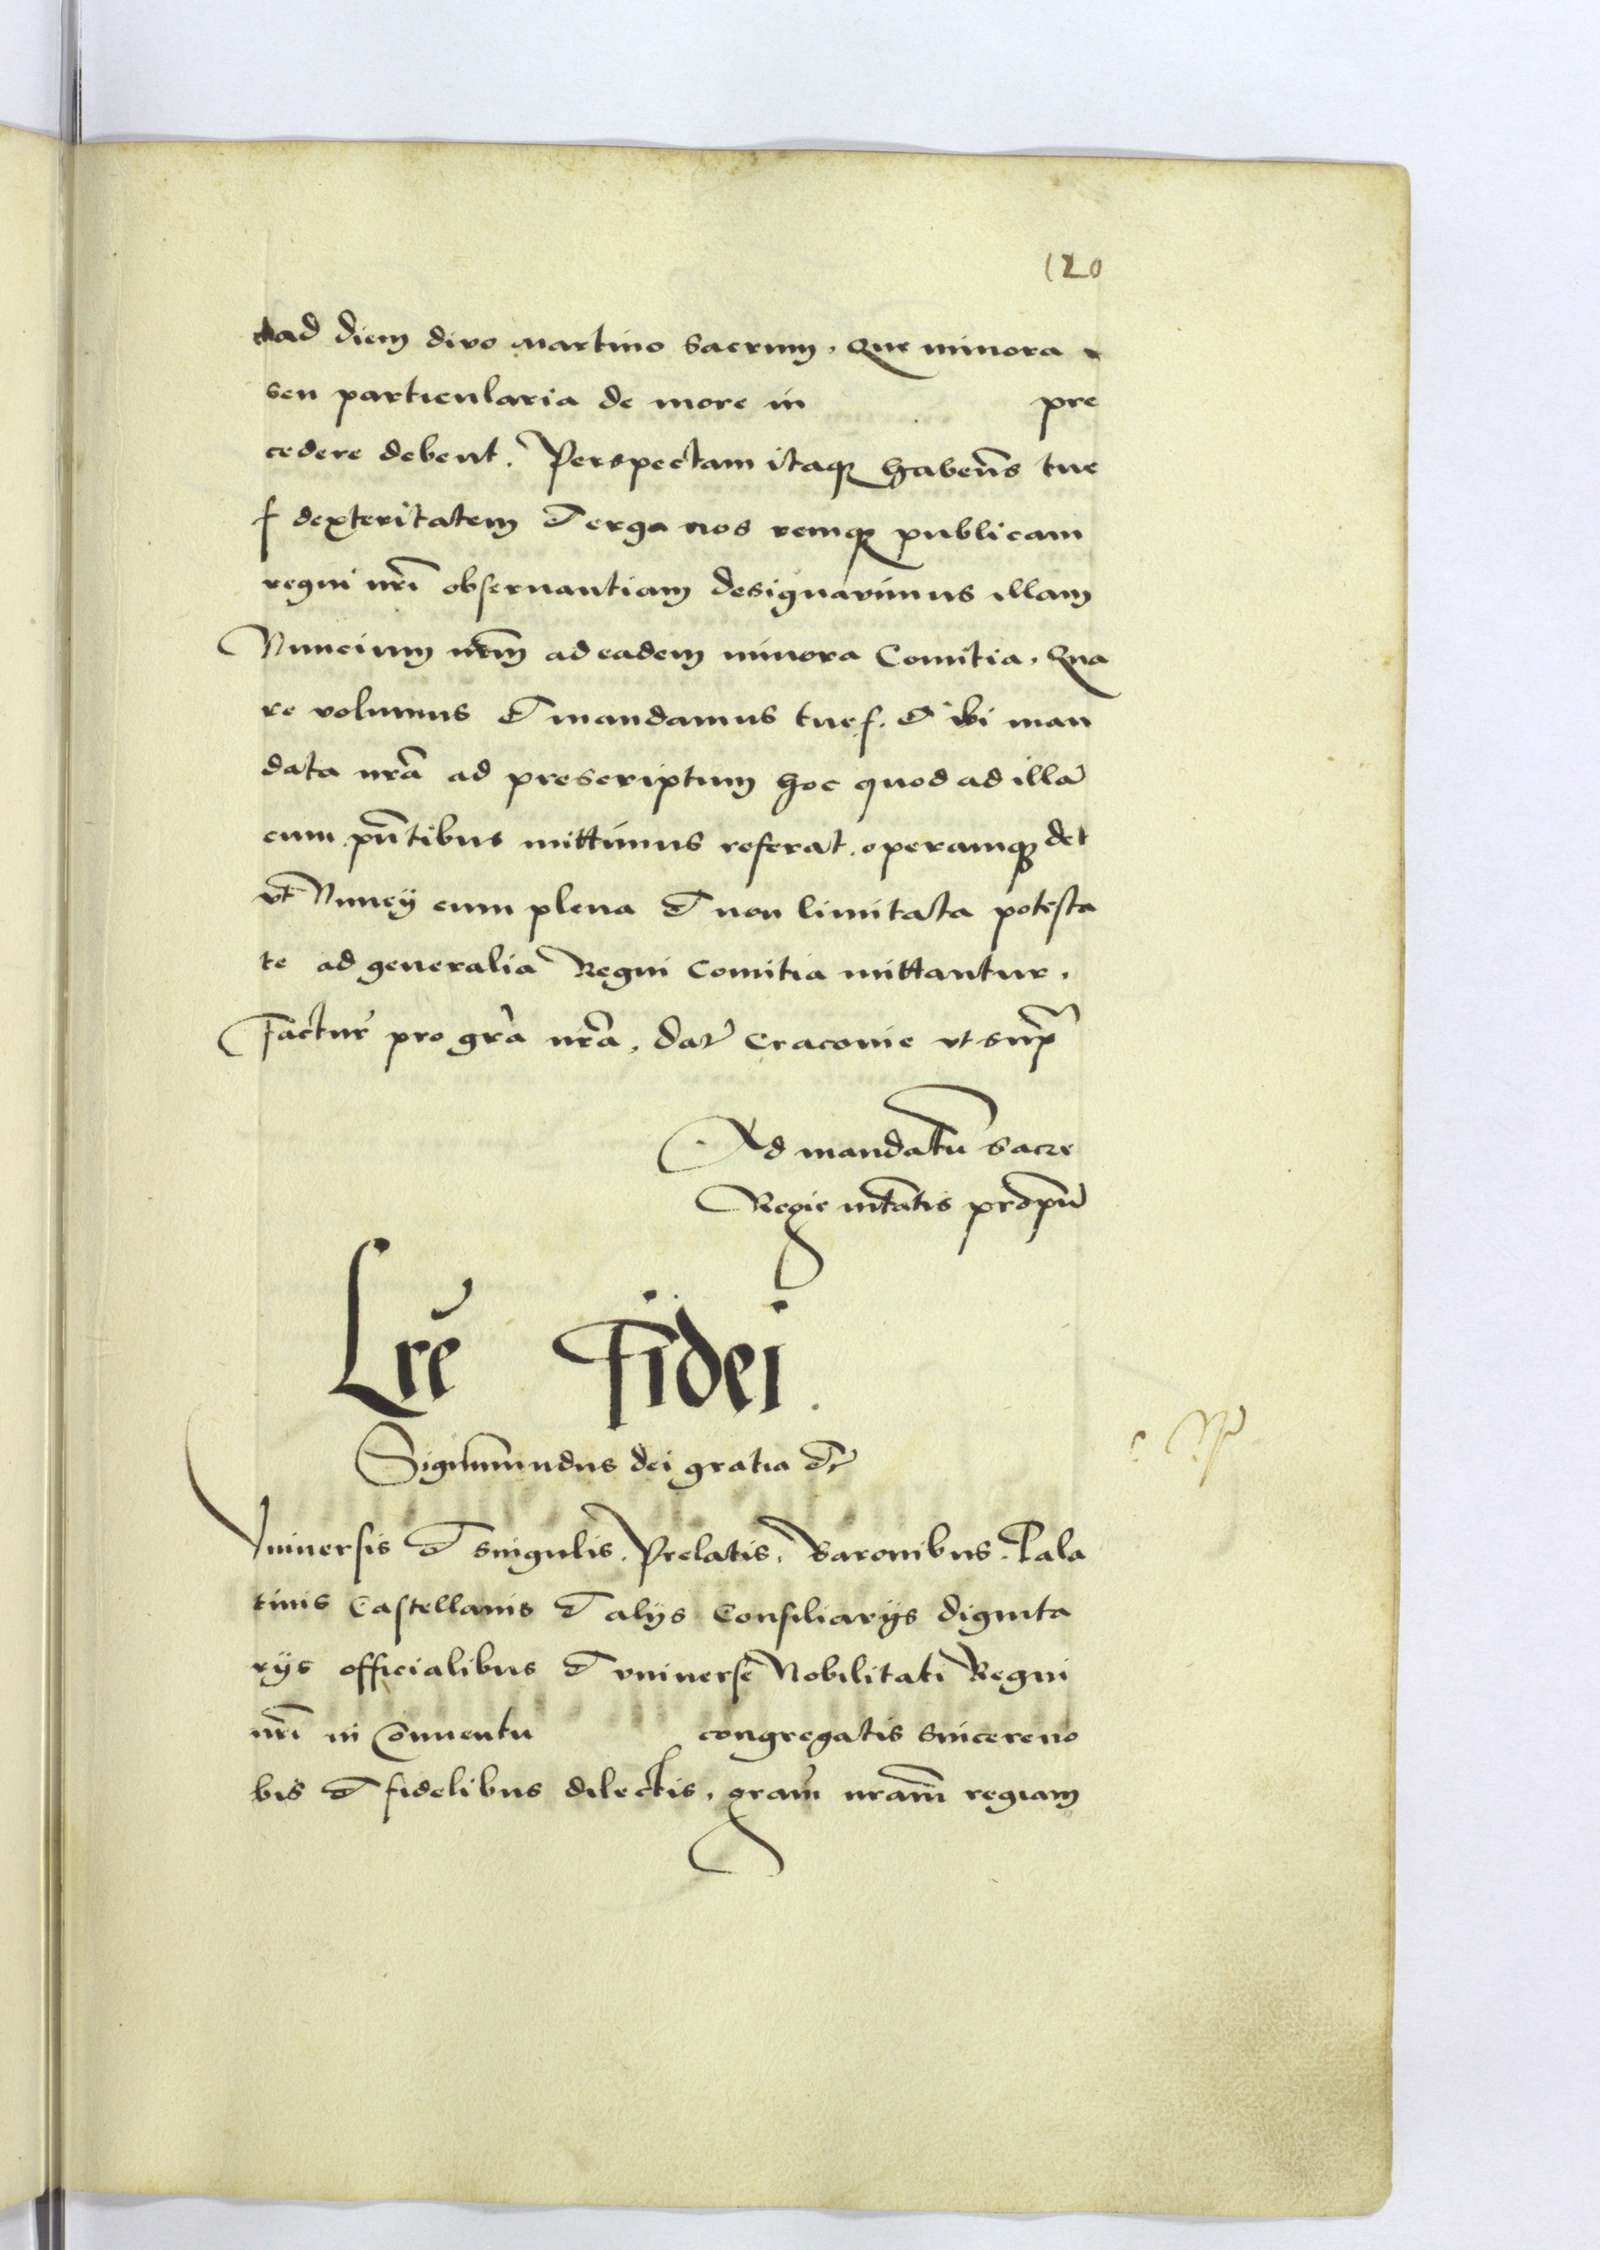 120
ad diem divo Martino sacrum, que minora
seu particularia de more in pre
cedere debent. Perspectam itaq habeñs tue
f dexteritatem et erga nos remq publicam
regni nrĩ obseruantiam designavimus illam
Nuncium nrm̃ ad eadem minora Comitia, Qua
re volumus et mandamus tue f. et ibi man
data nrã ad prescriptum hoc quod ad illã
cum pñtibus mittimus referat, operamq det
vt Nuncij cum plena et non limitata potesta
te ad generalia Regni Comitia mittantur.
Factur̃ pro grã nrã, dat̃ Cracovie vt supr̃
Ad mandatũ sacre
Regie mtãtis propriũ
Lrẽ Fidei.
Sigismundus dei gratia etc̃
Vniuersis et singulis, Prelatis, Baronibus, Pala
tinis Castellanis et alijs Consiliarijs dignita
rijs officialibus et vniuerse Nobilitati Regni
nrĩ in Conuentu congregatis sincere no
bis et fidelibus dilectis, gram̃ nram̃ regiam